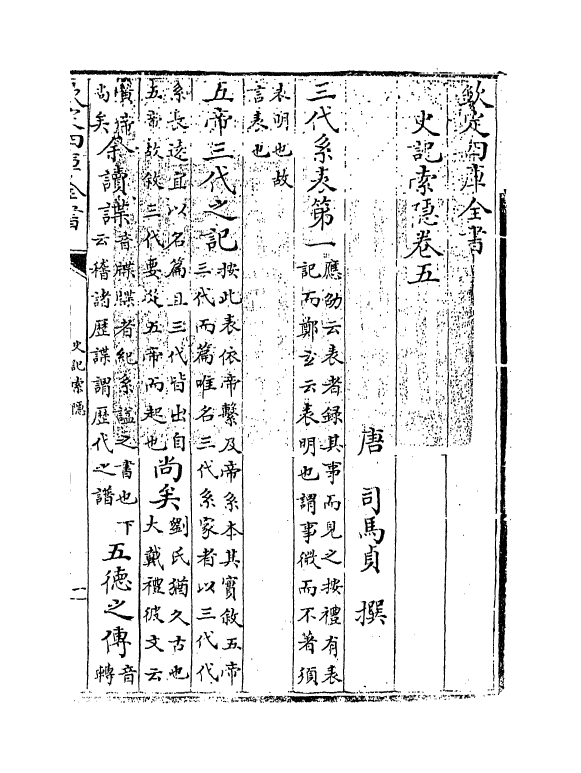 欽定四庫全書
史記索隱卷五
唐 司馬貞 撰
三代系表第一 應劭云表者錄其事而見之按禮有表
記而鄭玄云表明也謂事微而不著須
表明也故
言表也
五帝三代之記 按此表依帝繫及帝系本其實敘五帝
三代而篇唯名三代系家者以三代代
系長遠宜以名篇且三代皆出自
五帝故敘三代要從五帝而起也
尚矣 劉氏猶久古也
大戴禮彼文云
黃帝
尚矣
余讀諜 音牒牒者紀系謚之書也下
云稽諸歷諜謂歷代之譜
五德之傳 音
轉
欽定四庫全書
史記索隱
一